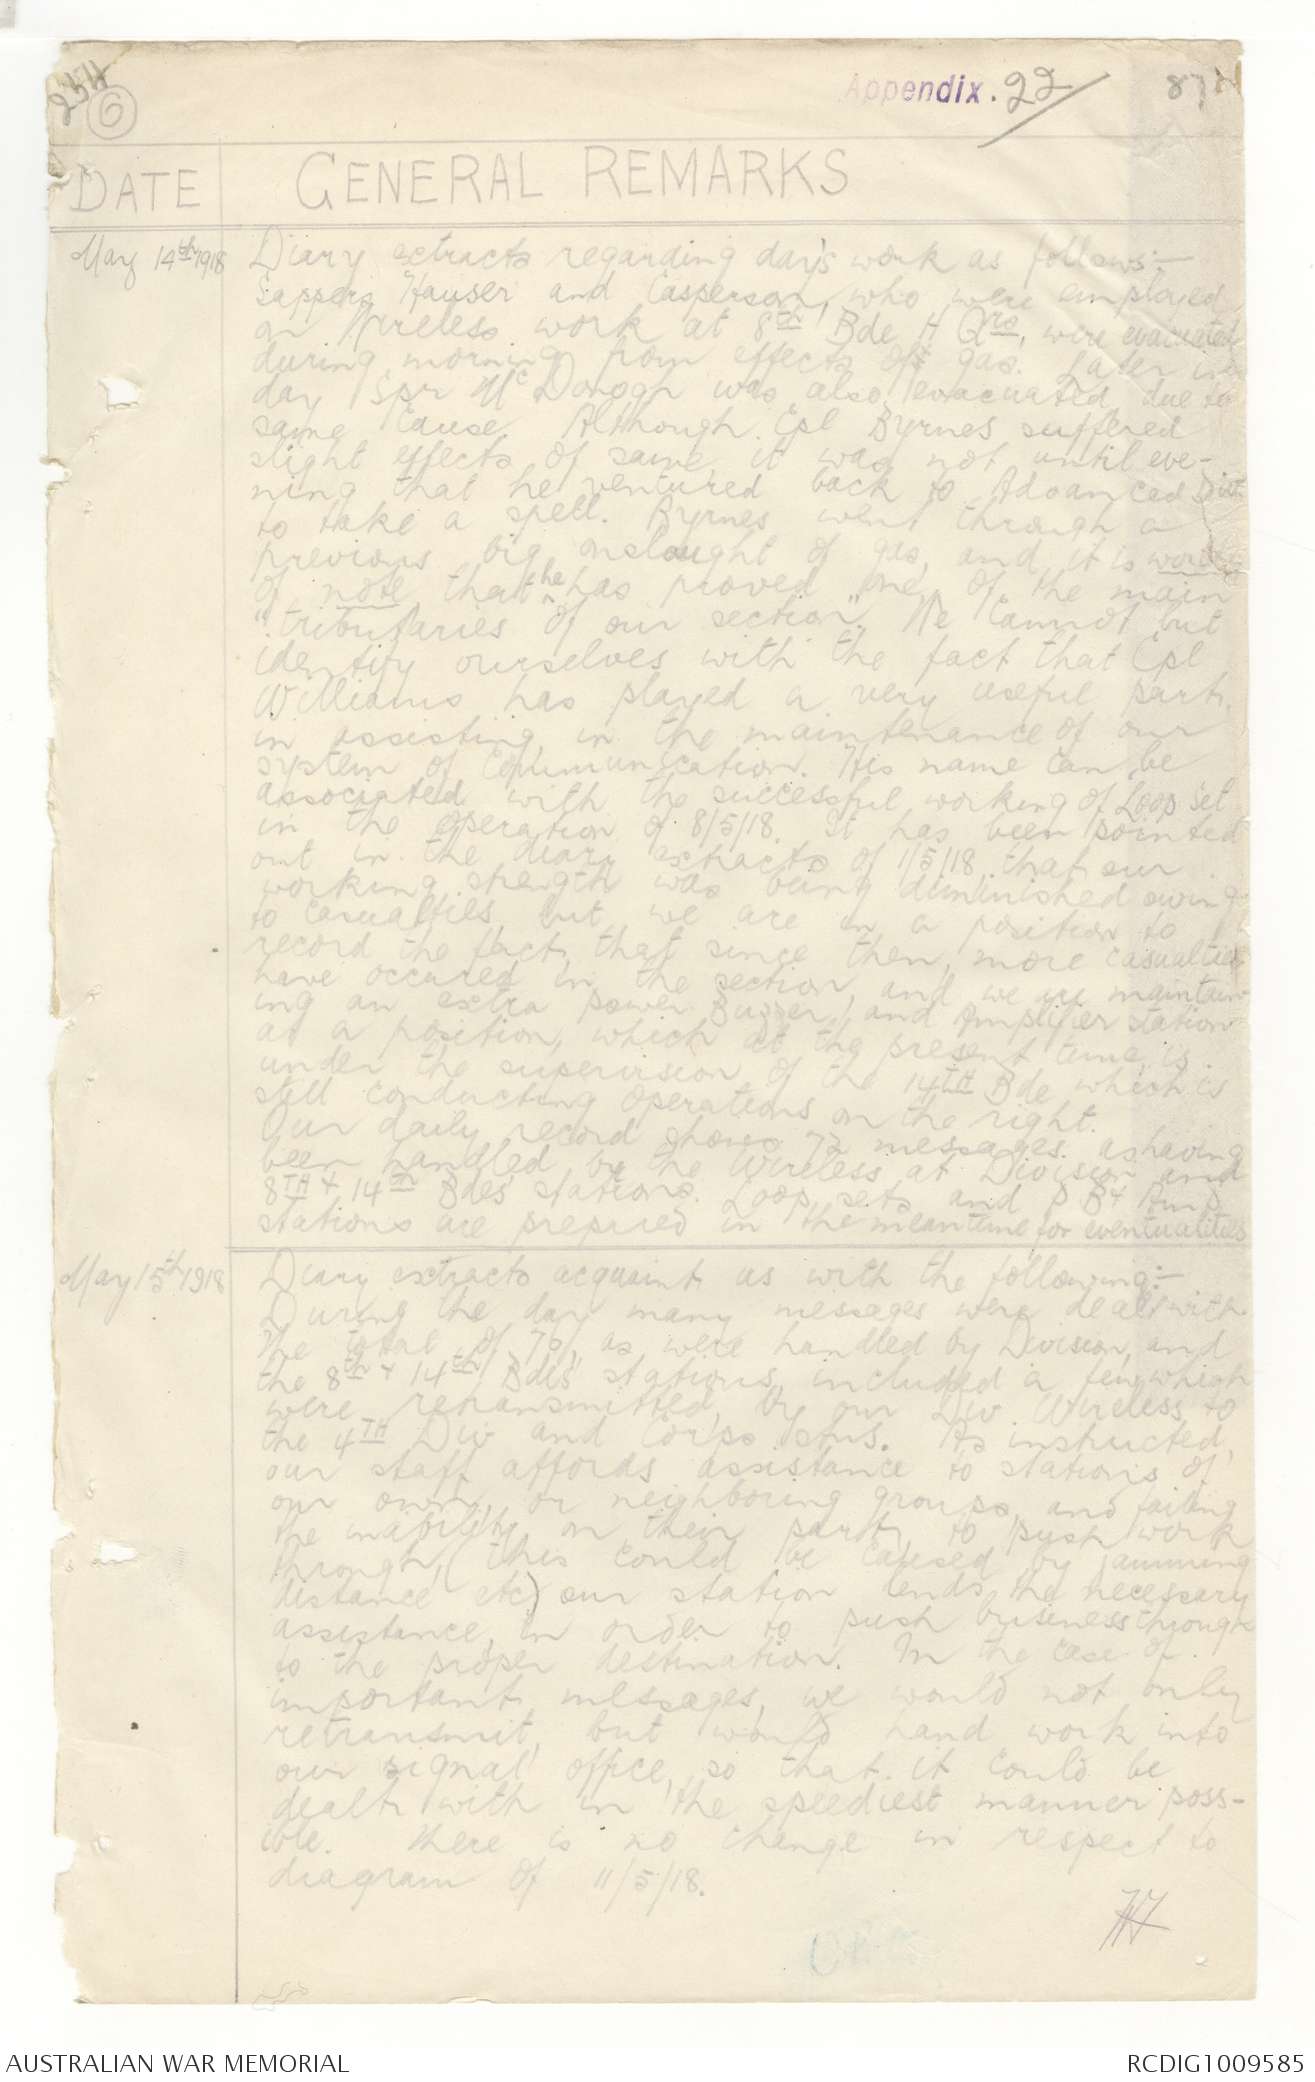 254
6
Appendix. 22
87
DATE
GENERAL REMARKS
May 14th 1918
Diary extracts regarding day's work as follows:—
Sappers Hauser and Casperson, who were employed
on Wireless work at 8th Bde H Qrs, were evacuated
during morning from effects of gas. Later in
day Spr McDonogh was also evacuated due to
same cause. Although Cpl Byrnes suffered
slight effects of same, it was not until eve-
ning that he ventured back to Advanced Divn
to take a spell. Byrnes went through a
previous big onslaught of gas, and it is worthy
of note that he has proved one of the main
"tributaries of our section". We cannot but
identify ourselves with the fact that Cpl
Williams has played a very useful part,
in assisting in the maintenance of our
system of Communication. His name can be
associated with the successful working of Loop set
in the operation of 8/5/18. It has been pointed
out in the diary extracts of 11/5/18 that our
working strength was being diminished owing
to casualties, but we are in a position to
record the fact, that since then, more casualties
have occured in the section, and we are maintain-
ing an extra power Buzzer, and Amplifier station
at a position, which at the present time, is
under the supervision of the 14TH Bde which is
still conducting Operations on the right.
Our daily record shows 72 messages as having
been handled by the Wireless at Division and
8TH & 14TH Bdes' stations. Loop sets and P B & Amp
stations are prepared in the meantime for eventualities
May 15th 1918
Diary extracts acquaint us with the following:—
During the day many messages were dealt with
The total of 70, as were handled by Division, and
the 8th & 14th Bdes' stations, included a few which
were retransmitted, by our Div Wireless to
the 4TH Div and Corps stns. As instructed,
our staff affords assistance to stations of
our own, or neighboring groups, and failing
the inability on their part, to push work
through, (this could be caused by jamming
distance etc) our station lends the necessary
assistance, in order to push business through
to the proper destination. In the case of
important messages, we would not only
retransmit, but would hand work into
our signal office, so that it could be
dealt with in the speediest manner poss-
ible. There is no change in respect to
diagram of 11/5/18.
AUSTRALIAN WAR MEMORIAL
RCDIG1009585